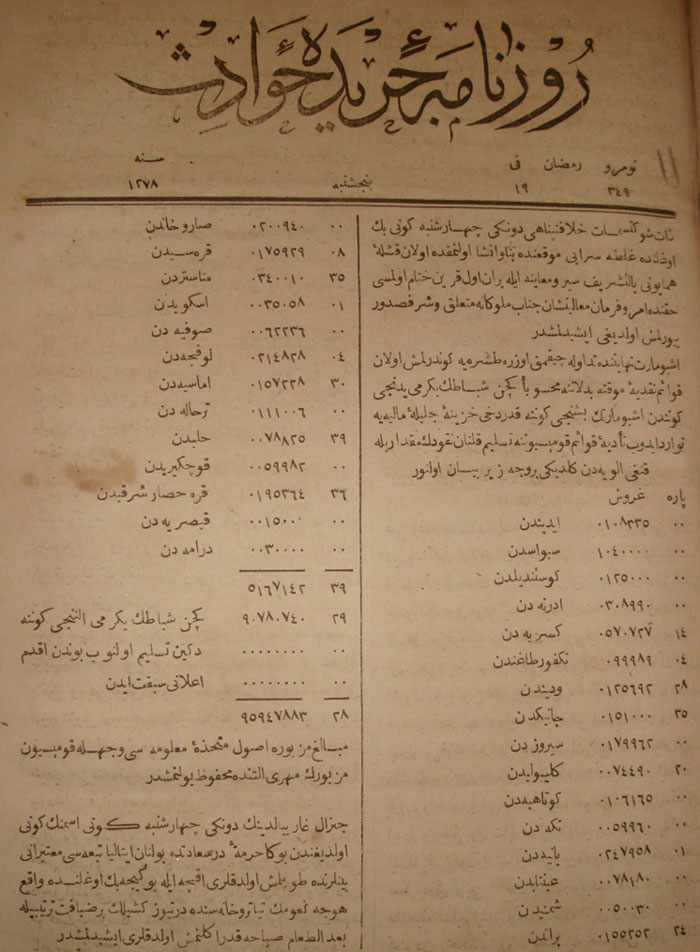 روزنامهٔ جریدهٔ حوادث
نومرو رمضان فی
پنجشنبه
سنه
٣٤٩
١٩
١٢٧٨
ذات شوکتسمات خلافتپناهی دونکی چهارشنبه کونی بك
اوغلنده غلطه سرایی موقعنده بنا و انشا اولنمقده اولان قشلهٔ
همایونی بالتشریف سیر و معاینه ایله بران اول قرین ختام اولمسی
حقنده امر و فرمان معالیشان جناب ملوکانه متعلق و شرفصدور
بیورلمش اولدیغی ایشیدلمشدر
اشبو مارت نهایتنده تداوله چیقمق اوزره طشره یه کوندرلمش اولان
قوائم نقدیهٔ موقته بدلاتنه محسوباً کچن شباطك یکرمی یدنجی
کونندن اشبو مارتك بشنجی کوننه قدر دخی خزینهٔ جلیلهٔ مالیه یه
توارد ایدوب تأدیهٔ قوائم قومیسیوننه تسلیم قلنان نقودك مقداریله
قنغی الویه دن کلدیکی بروجه زیر بیان اولنور
پاره غروش
٠٠ ٠١٠٨٣٣٥ ایدیندن
٠٠ ١٠٤٠٠٠٠ سیواسدن
٠٠ ٠١٢٥٠٠٠ کوستندیلدن
٠٠ ٠٣٠٨٩٩٠ ادرنه دن
١٤ ٠٥٧٠٧٢٧ کسریه دن
٠٤ ٠٠٩٩٩٨٩ تکفور طاغندن
٢٨ ٠١٢٥٦٩٢ ودیندن
٣٥ ٠١٥١٠٠٠ جانیکدن
٠٠ ٠١٧٩٩٦٢ سیروز دن
٢٠ ٠٠٧٤٤٩٠ کلیبولیدن
٠٠ ٠١٠٦١٦٥ کوتاهیه دن
٠٠ ٠٠٥٩٩٦٠ تکه دن
٠١ ٠٢٤٧٩٥٨ یانیه دن
٠٠ ٠٠٧٨١٨٠ عینتابدن
٠٠ ٠٠٥٠٠٣٠ شمنیدن
٢٤ ٠١٥٥٢٥٢
٠٠ ٠٢٠٠٩٤٠ صاروخاندن
٠٨ ٠١٧٥٩٢٩ قره سیدن
٣٥ ٠٣٤٠٠١٠ مناستردن
٠١ ٠٠٣٥٠٥٨ اسکوبدن
٠٠ ٠٠٦٢٢٣٦ صوفیه دن
٠٤ ٠٢١٤٨٢٨ لوفجه دن
٣٠ ٠١٥٧٢٢٨ اماسیه دن
٠٠ ٠١١١٠٠٦ ترحاله دن
٣٩ ٠٠٧٨٨٢٥ حلبدن
٠٠ ٠٠٥٩٩٨٢ قوچکیریدن
٣٦ ٠١٩٥٣٦٤ قره حصار شرقیدن
٠٠ ٠٠١٥٠٠٠ قیصریه دن
٠٠ ٠٠٣٠٠٠٠ درامه دن
٣٩ ٥١٦٧١٤٢
٢٩ ٩٠٧٨٠٧٤٠ کچن شباطك یکرمی التنجی کوننه
٠٠ ٠٠٠٠٠٠٠٠ دکین تسلیم اولنوب بوندن اقدم
٠٠ ٠٠٠٠٠٠٠٠ اعلانی سبقت ایدن
٢٨ ٩٥٩٤٧٨٨٣
مبالغ مزبوره اصول متخذهٔ معلومه سی وجهله قومیسیون
مزبورك مهری التنده محفوظ بولنمشدر
جنرال غاریبالدینك دونکی چهارشنبه کونی اسمنك کونی
اولدیغندن بوکا حرمةً درسعادتده بولنان ایتالیا تبعه سی معتبرانی
بینلرنده طوپلمش اولدقلری اقچه ایله بو کیجه بك اوغلنده واقع
خواجه نعومك تیاتروخانه سنده درتیوز کشیلك بر ضیافت ترتیبیله
بعد الطعام صباحه قدر اکلنمش اولدقلری ایشیدلمشدر